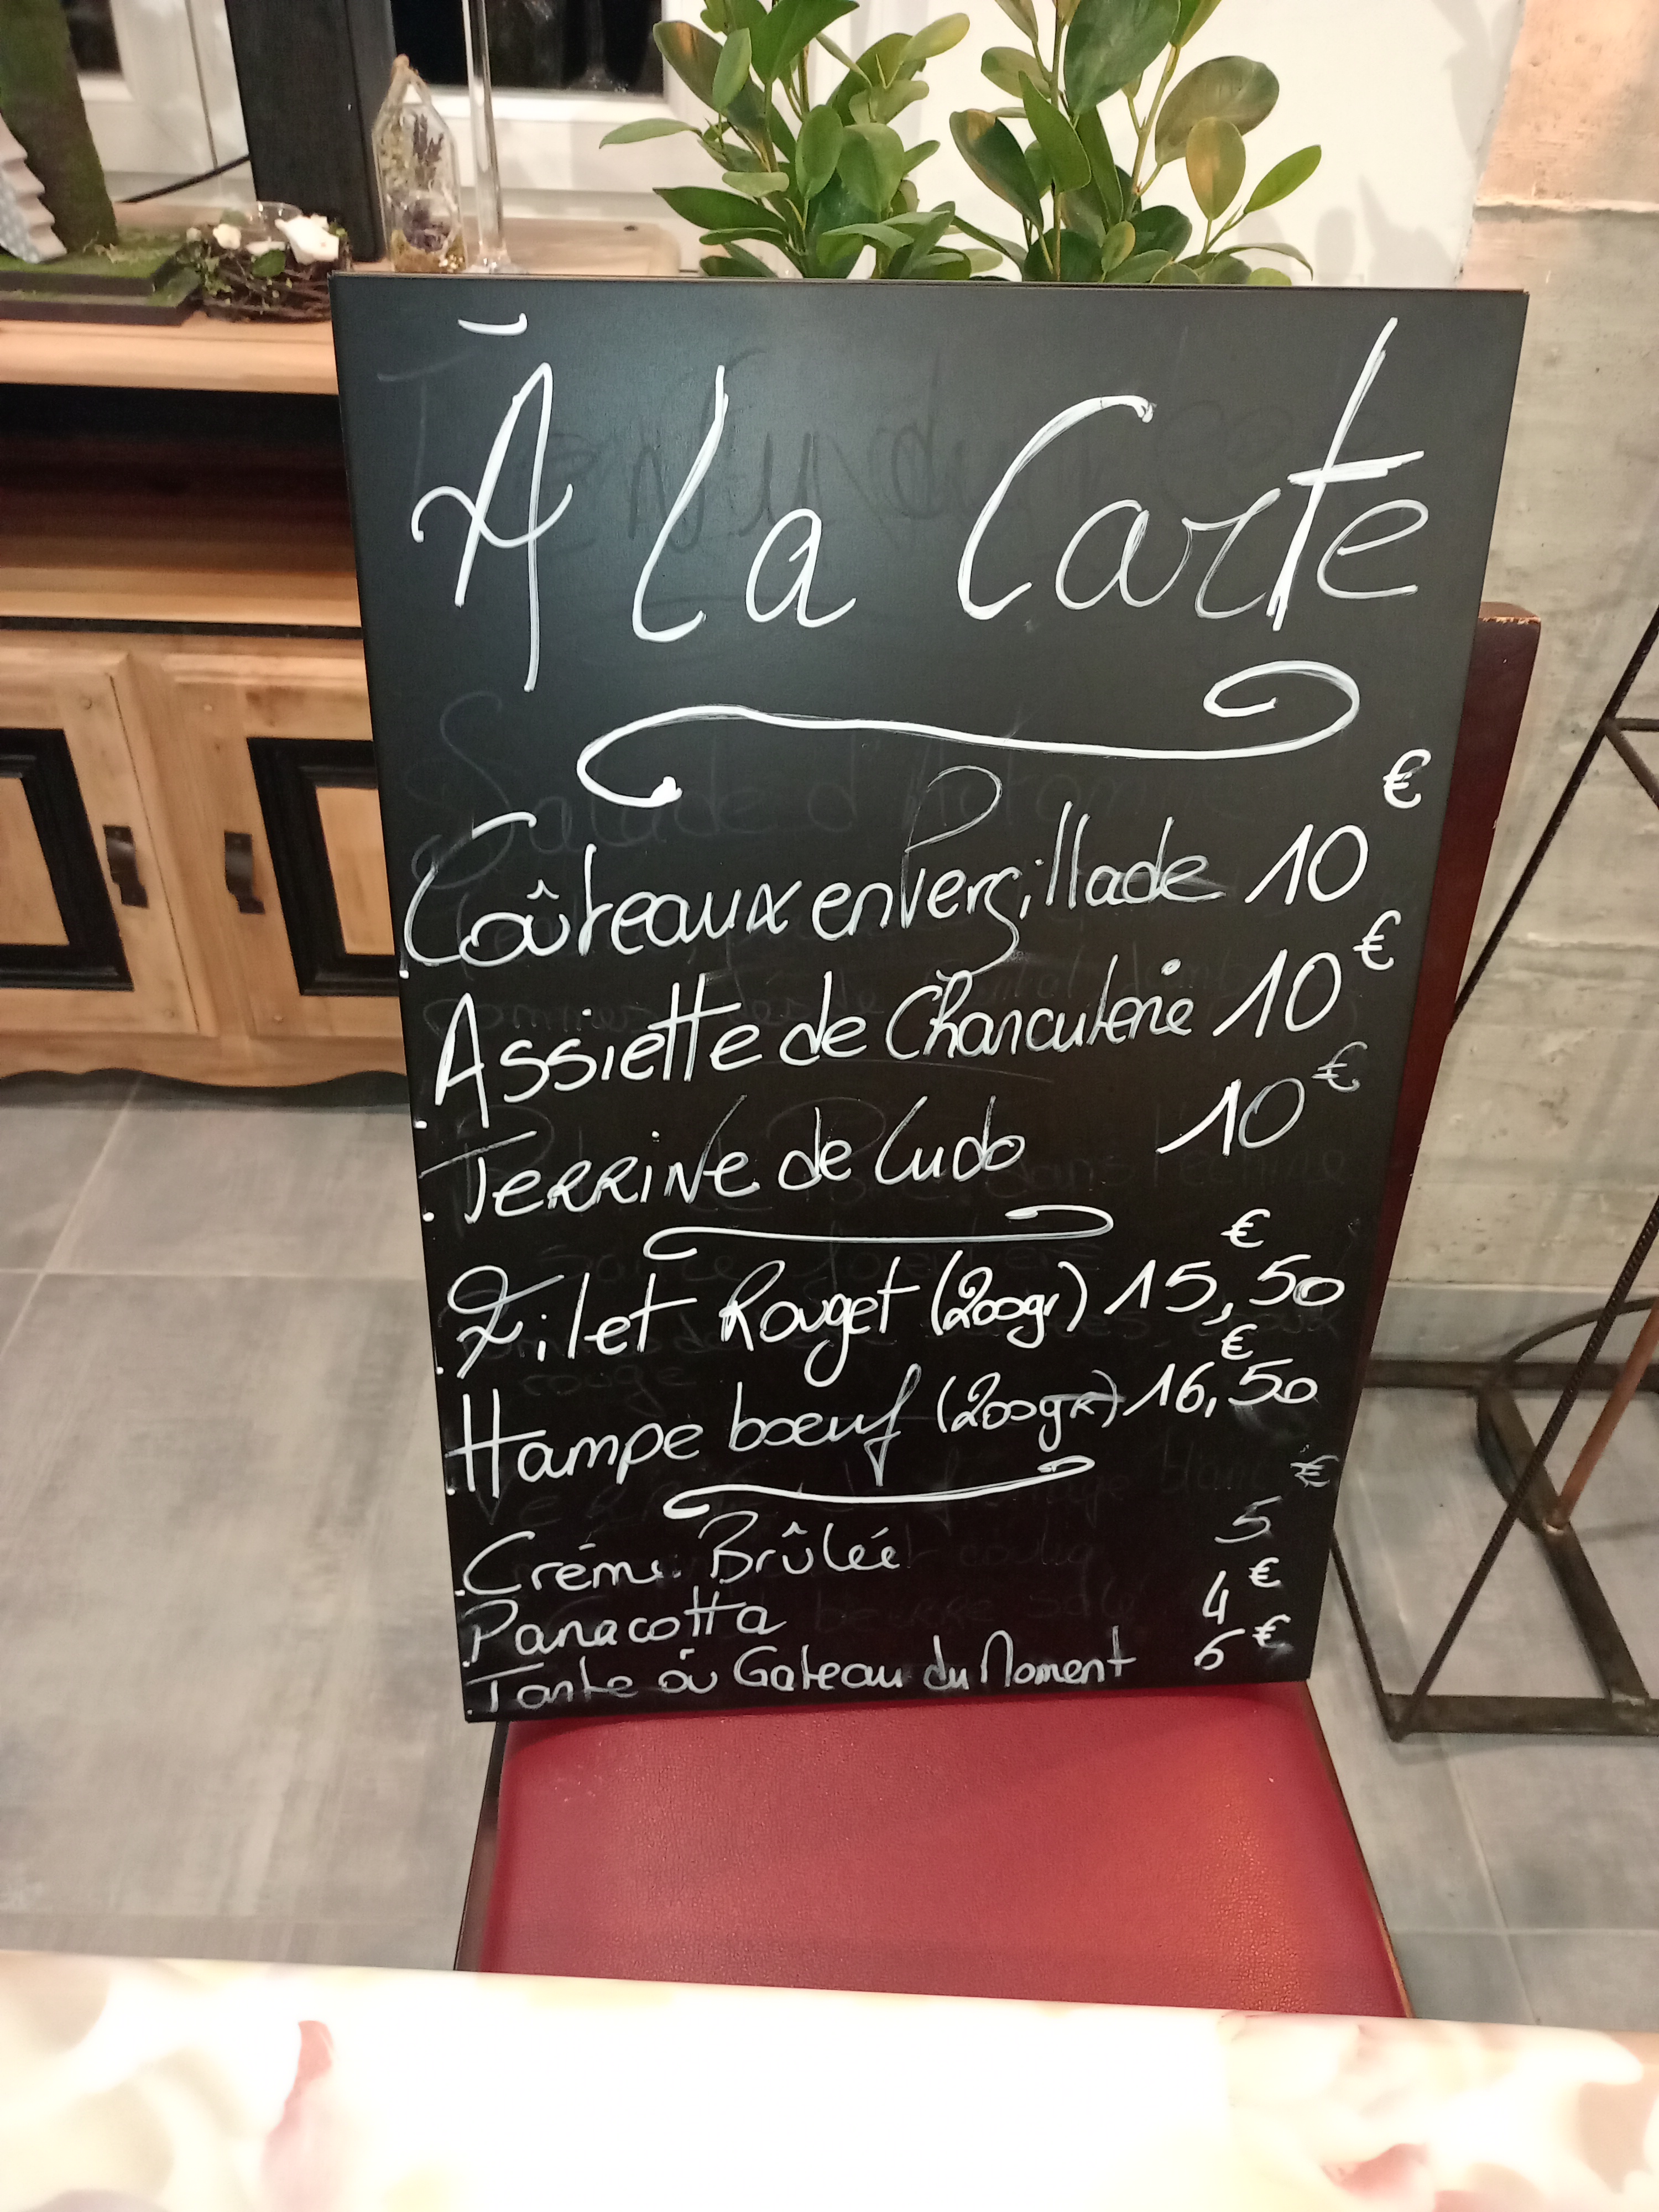 À La Carte
Coûteaux en Persillade 10€
. Assiette de Charcuterie 10€
. Terrine de Ludo 10€
. Filet Rouget (200gr) 15,50€
. Hampe boeuf (200gr) 16,50€
. Créme Brûlée 5€
. Panacotta 4€
. Tarte oú Gateau du Moment 6€